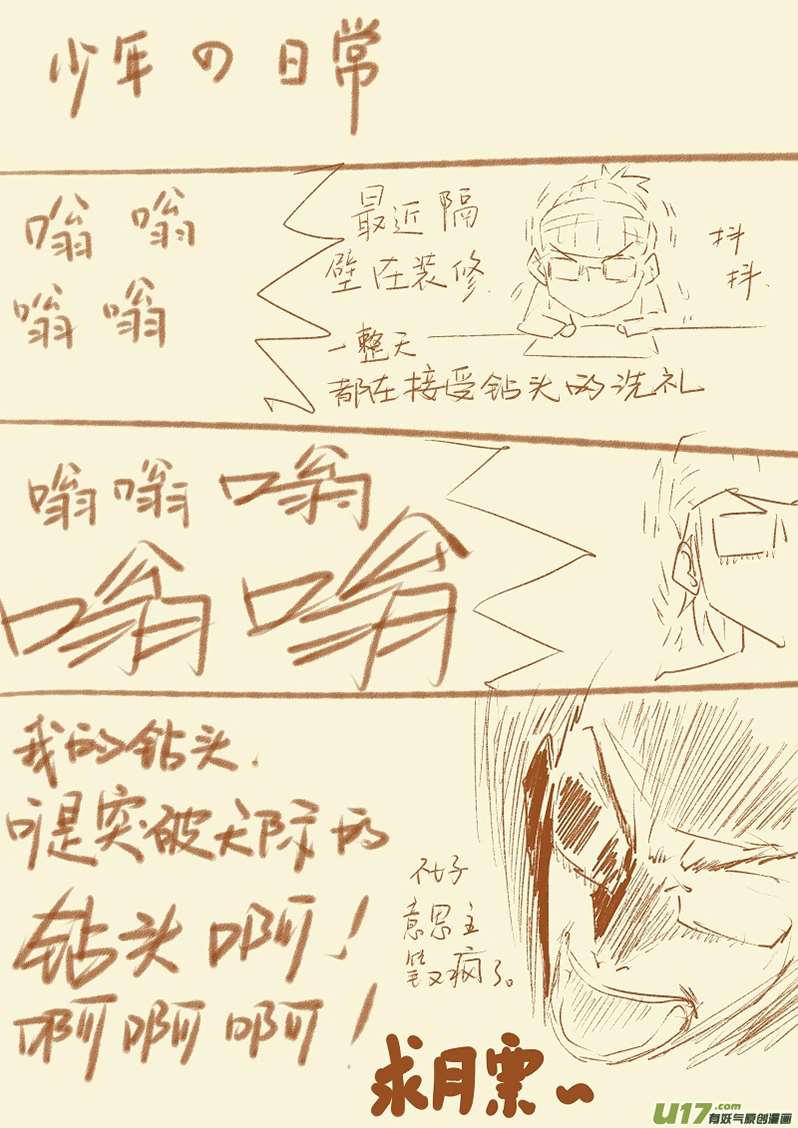 少年の日常
嗡 嗡
嗡 嗡
最近隔
壁在装修.
一整天
都在接受钻头的洗礼
抖
抖.
嗡嗡嗡
嗡嗡
我的钻头.
可是突破天际的
钻头啊！
啊啊啊！
不好
意思主
笔又疯了。
求月票~
U17.com
有妖气原创漫画